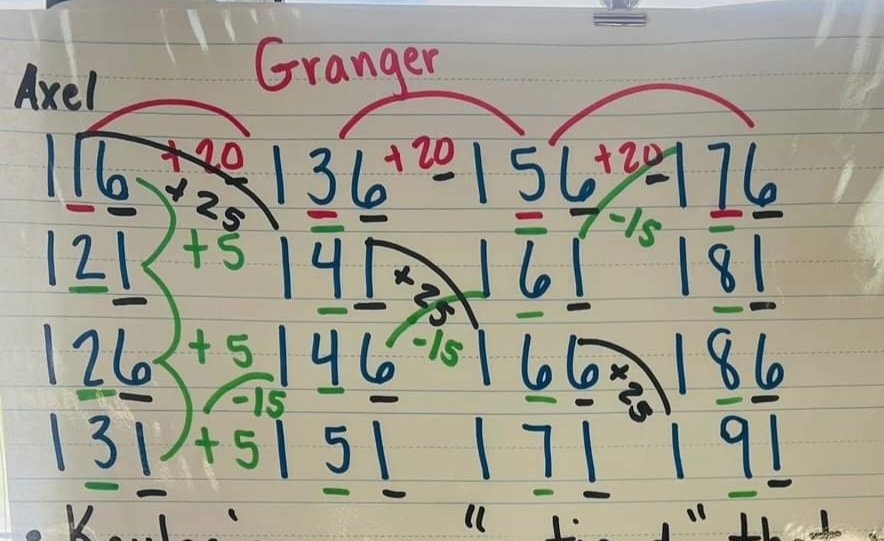 Granger
Axel
116 +20 136 +20 156 +20 176
+25 -15
121 +5 141 161 181
+25
126 +5 146 -15 166 186
-15 +25
131 +5 151 171 191